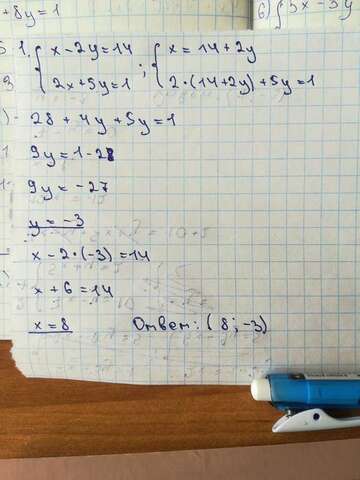 +8y=1
6) {3x-5y
1. {x-2y=14 ; {x=14+2y
{2x+5y=1 {2·(14+2y)+5y=1
28+4y+5y=1
9y=1-28
9y=-27
y=-3
x-2·(-3)=14
x+6=14
x=8 Ответ: (8;-3)